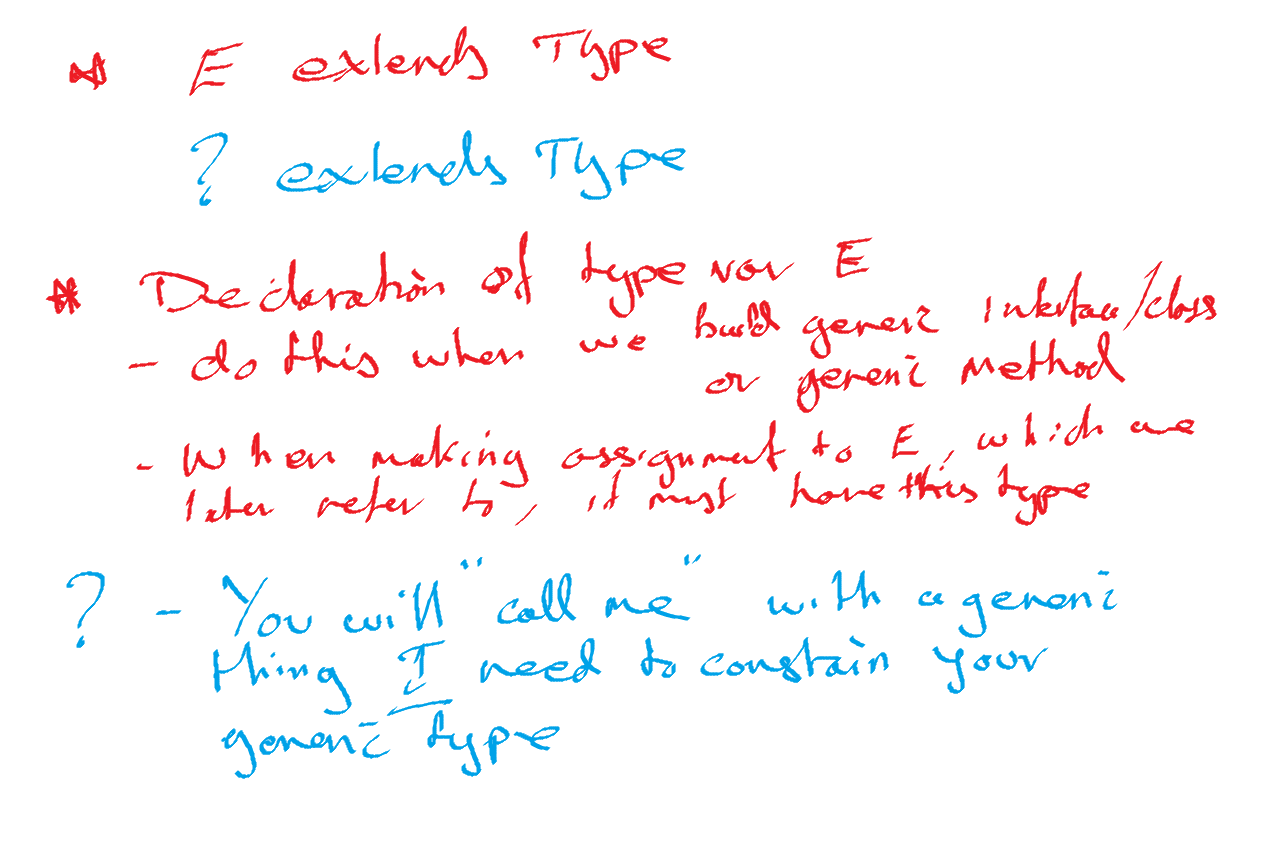 * E extends Type
? extends Type
* Declaration of type var E
- do this when we build generic interface/class
or generic method
- When making assignment to E, which we
later refer to, it must have this type
? - You will "call me" with a generic
thing I need to constain your
generic type